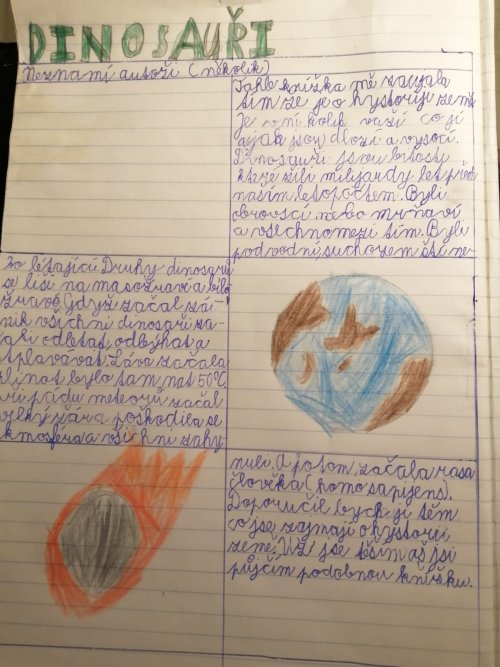 DINOSAUŘI
Neznamí autoři (někólik)
Tahle knížka mě zaujala
tím že je o hystoriji země
Je v ní kolik váží co jí
a jak jsou dlozí a vysocí.
Dinosauři jsou bitosti
které žili milijardy let před
naším letopočtem. Byli
obrovscí nebo mrňaví
a všechno mezi tím. Byli
podvodní, suchozemští ne-
bo létající Druhy dinosarů
se liší na masožravé a bílo
žravé. Gdyž začal zá-
nik všichni dinosaři za-
čali odletat, odbýhat a
plavávat. Láva začala
být nad 50°C
při pádu meteoru začal
velký žára poškodila se
tmosféra a všichni zahy-
nuli. A potom začala rasa
člověka (homo sapijens).
Doporučil bych ji těm
co jse zajmají o hystorii
země. Už jse těším až jsi
půjčím podobnou knížku.